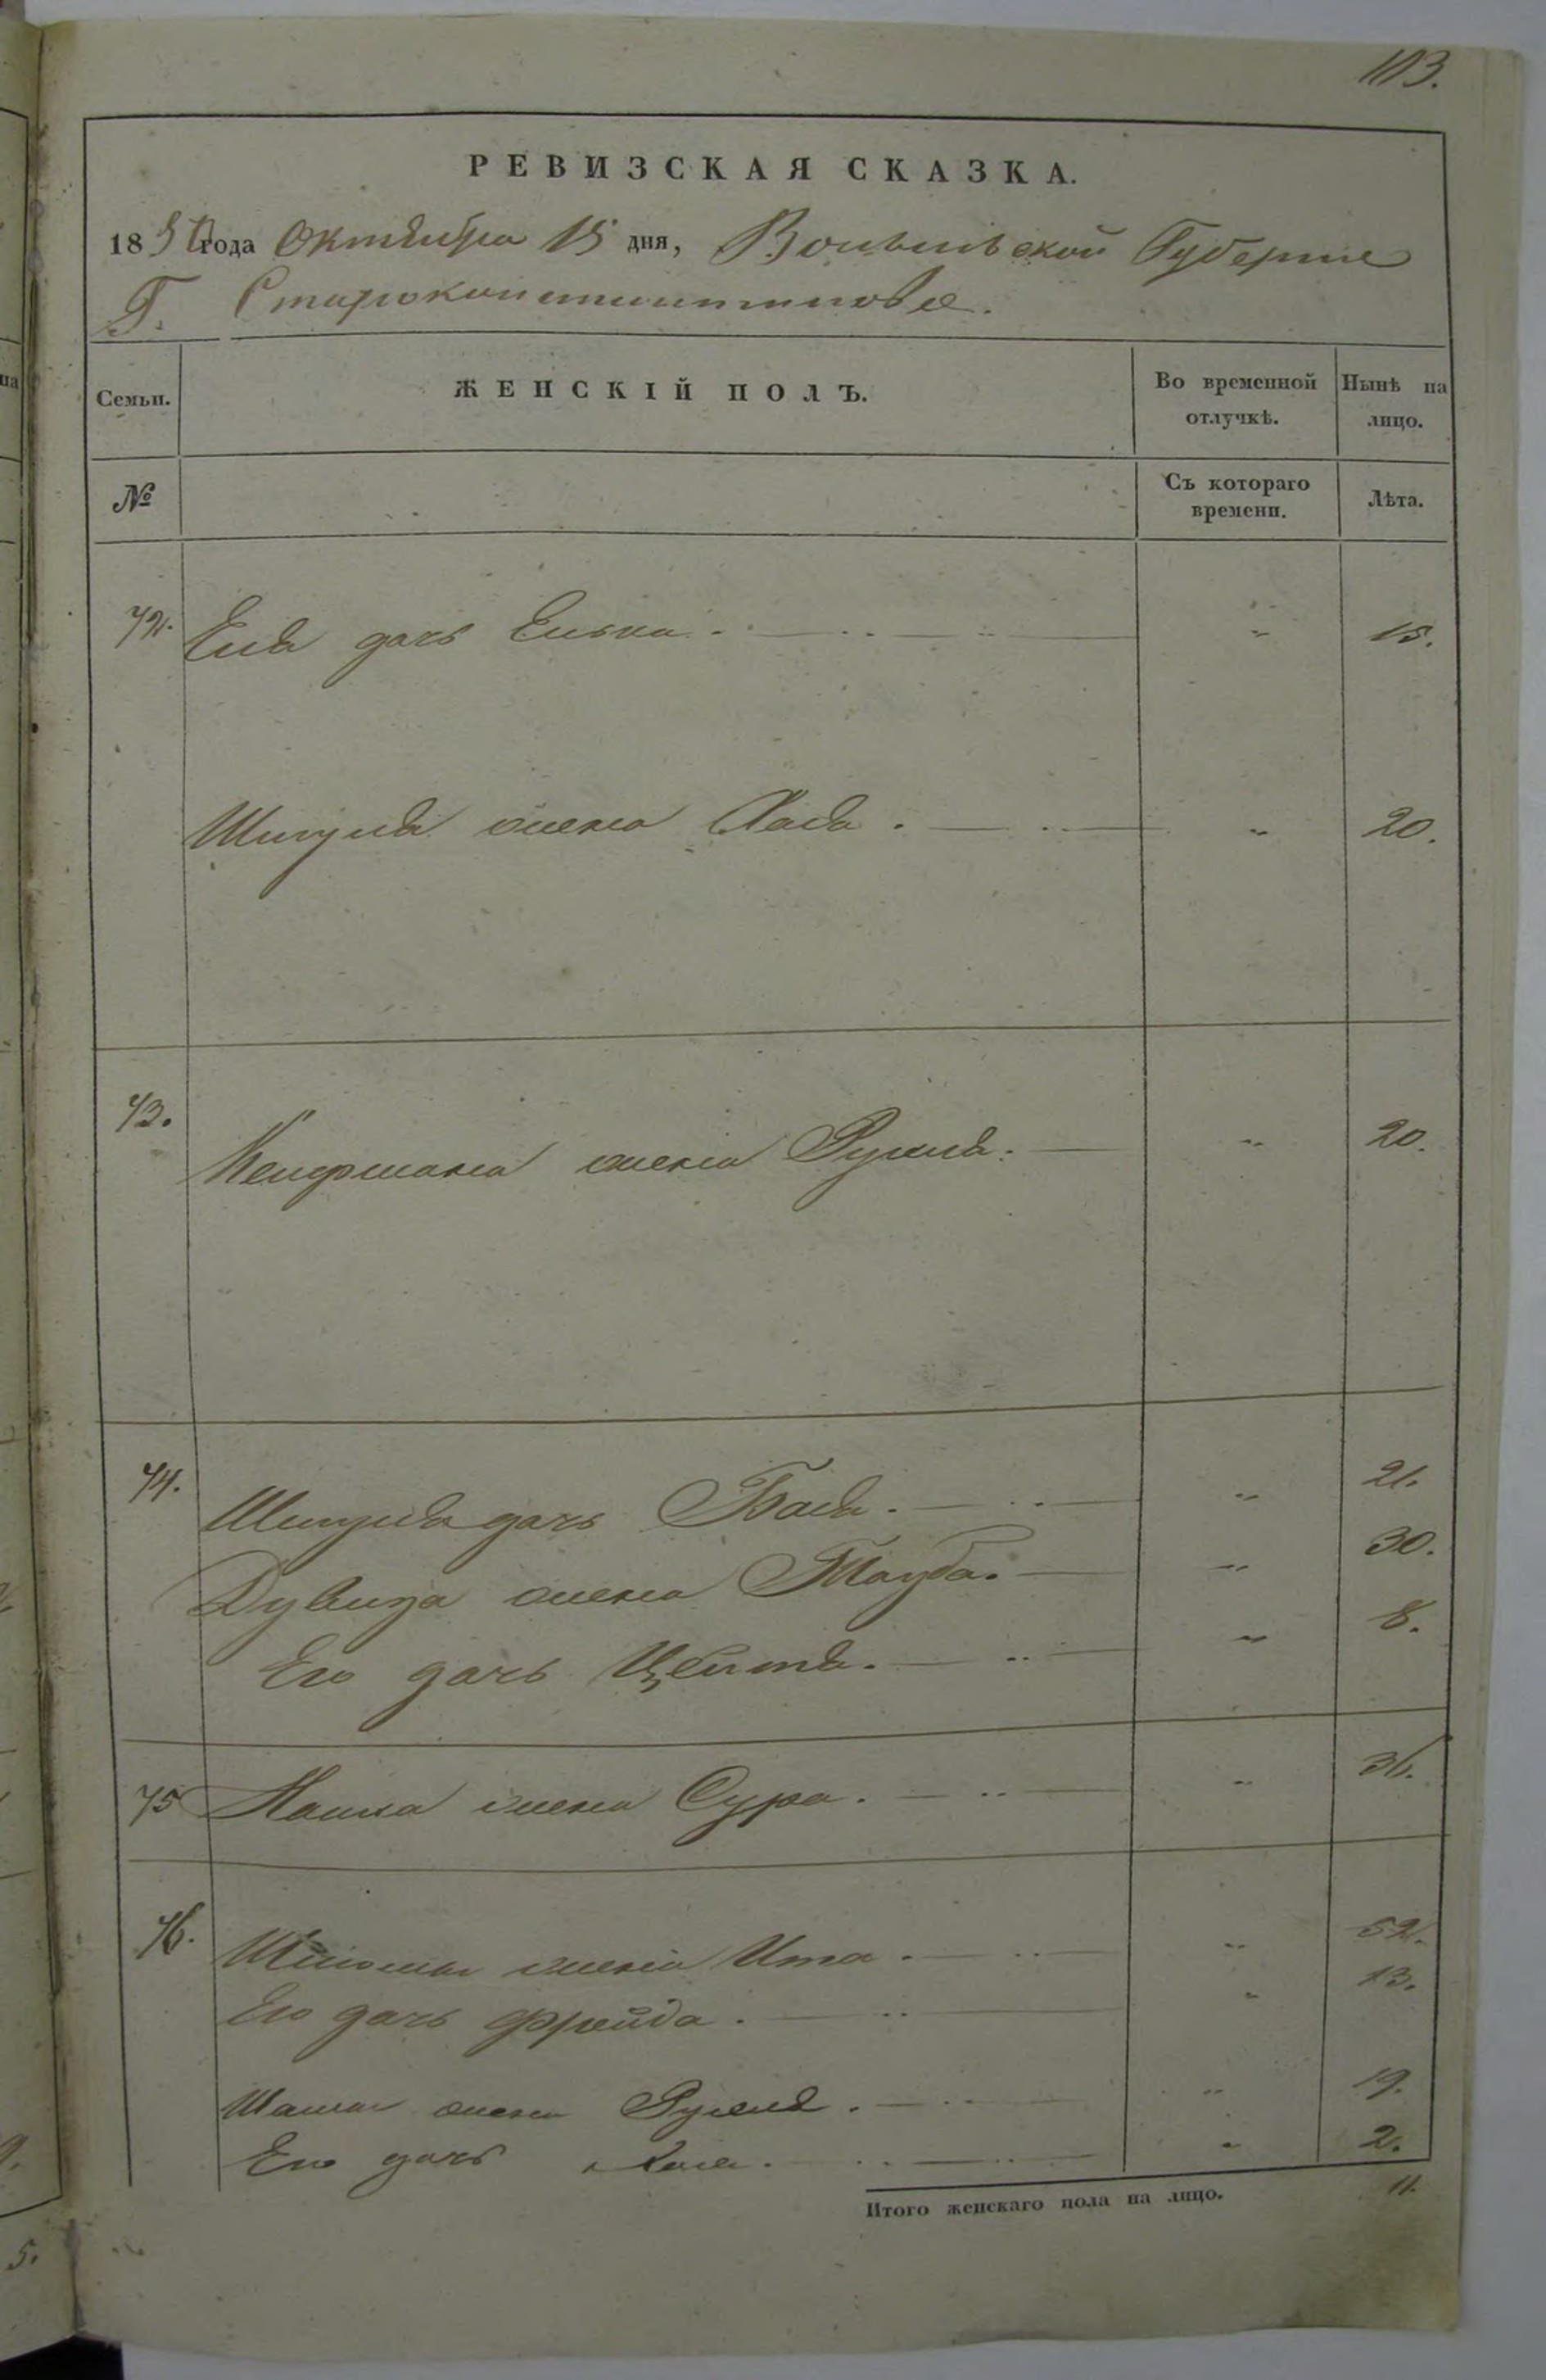 113.
РЕВИЗСКАЯ СКАЗКА.
1850 года Октября 15 дня, Волынской Губернии
Г. Староконстантинова.
Семьи. ЖЕНСКІЙ ПОЛЪ. Во временной отлучкѣ. Нынѣ на лицо.
№ Съ котораго времени. Лѣта.
72. дочь „ 15.
жена Хая „ 20.
73. жена Рухля. „ 20.
74. дочь Бася. „ 21.
жена Тауба. „ 30.
Его дочь „ 8.
75 жена Сура. „ 36.
76. Шлiомы жена Ита. „ 52.
Его дочь Фрейда. „ 13.
жена Рухля. „ 19.
Его дочь „ 2.
Итого женскаго пола на лицо. 11.
5.